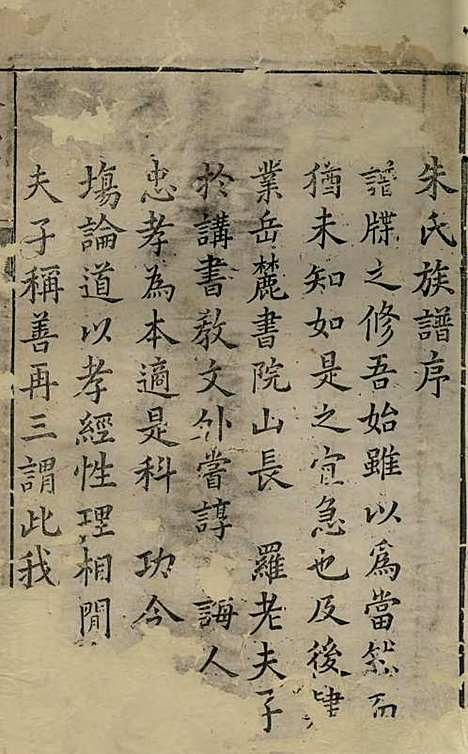 朱氏族譜序
譜牒之修吾始雖以爲當然而
猶未知如是之宜急也及後肄
業岳麓書院山長 羅老夫子
於講書教文外嘗諄 誨人
忠孝為本適是科 功令
塲論道以孝經性理相閒
夫子稱善再三謂此我